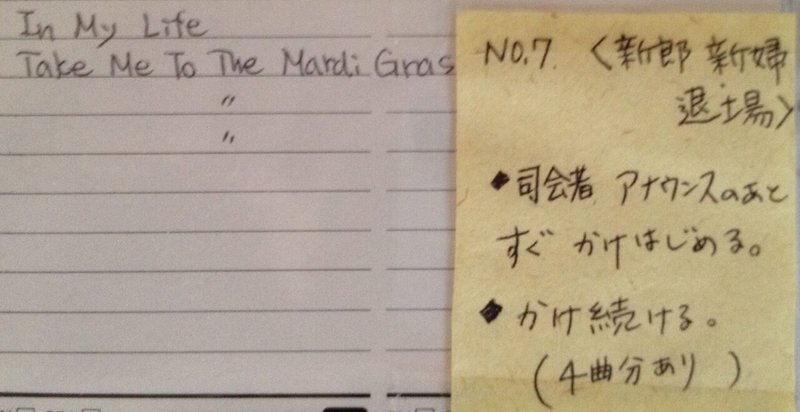 In My Life
Take Me To The Mardi Gras
〃
〃
NO.7 〈新郎 新婦
退場〉
◆司会者 アナウンスのあと
すぐ かけはじめる。
◆かけ続ける。
(4曲分あり)